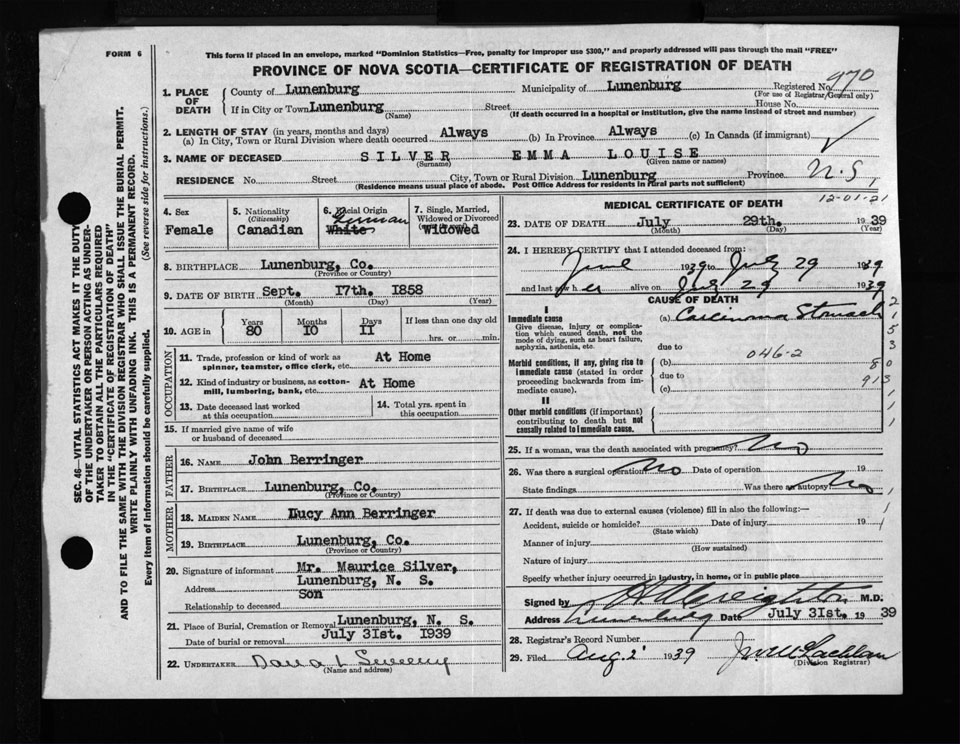 FORM 6
This form if placed in an envelope, marked "Dominion Statistics—Free, penalty for improper use $300," and properly addressed will pass through the mail "FREE"
PROVINCE OF NOVA SCOTIA—CERTIFICATE OF REGISTRATION OF DEATH
SEC. 46—VITAL STATISTICS ACT MAKES IT THE DUTY
OF THE UNDERTAKER OR PERSON ACTING AS UNDER-
TAKER TO OBTAIN ALL THE PARTICULARS REQUIRED
IN THE "CERTIFICATE OF REGISTRATION OF DEATH" AND TO FILE THE SAME WITH THE DIVISION REGISTRAR WHO SHALL ISSUE THE BURIAL PERMIT.
WRITE PLAINLY WITH UNFADING INK. THIS IS A PERMANENT RECORD.
Every item of information should be carefully supplied. (See reverse side for instructions.)
1. PLACE OF DEATH County of Lunenburg Municipality of Lunenburg Registered No. 970
(For use of Registrar General only)
If in City or Town Lunenburg Street House No.
(Name) (If death occurred in a hospital or institution, give the name instead of street and number)
2. LENGTH OF STAY (in years, months and days)
(a) In City, Town or Rural Division where death occurred Always (b) In Province Always (c) In Canada (if immigrant)
3. NAME OF DECEASED SILVER EMMA LOUISE
(Surname) (Given name or names)
RESIDENCE No. Street City, Town or Rural Division Lunenburg Province N.S.
(Residence means usual place of abode. Post Office Address for residents in rural parts not sufficient)
12-01-21
4. Sex Female
5. Nationality (Citizenship) Canadian
6. Racial Origin German White
7. Single, Married, Widowed or Divorced Widowed
8. BIRTHPLACE Lunenburg, Co.
(Province or Country)
9. DATE OF BIRTH Sept. 17th. 1858
(Month) (Day) (Year)
10. AGE in Years 80 Months 10 Days 11 If less than one day old
hrs. or min.
OCCUPATION
11. Trade, profession or kind of work as spinner, teamster, office clerk, etc. At Home
12. Kind of industry or business, as cotton-mill, lumbering, bank, etc. At Home
13. Date deceased last worked at this occupation
14. Total yrs. spent in this occupation
15. If married give name of wife or husband of deceased
FATHER
16. NAME John Berringer
17. BIRTHPLACE Lunenburg, Co.
(Province or Country)
MOTHER
18. MAIDEN NAME Lucy Ann Berringer
19. BIRTHPLACE Lunenburg, Co.
(Province or Country)
20. Signature of informant Mr. Maurice Silver,
Address Lunenburg, N. S.
Relationship to deceased Son
21. Place of Burial, Cremation or Removal Lunenburg, N. S.
Date of burial or removal July 31st. 1939
22. UNDERTAKER
(Name and address)
MEDICAL CERTIFICATE OF DEATH
23. DATE OF DEATH July 29th. 1939
(Month) (Day) (Year)
24. I HEREBY CERTIFY that I attended deceased from:
June 1939 to July 29 1939
and last saw her alive on July 29 1939
CAUSE OF DEATH
I
Immediate cause (a) Carcinoma Stomach
Give disease, injury or complication which caused death, not the mode of dying, such as heart failure, asphyxia, asthenia, etc.
due to
046-2
Morbid conditions, if any, giving rise to immediate cause (stated in order proceeding backwards from immediate cause).
(b)
due to
(c)
II
Other morbid conditions (if important) contributing to death but not causally related to immediate cause.
25. If a woman, was the death associated with pregnancy? No
26. Was there a surgical operation? No Date of operation 19
State findings Was there an autopsy? No
27. If death was due to external causes (violence) fill in also the following:—
Accident, suicide or homicide? Date of injury 19
(State which)
Manner of injury
(How sustained)
Nature of injury
Specify whether injury occurred in industry, in home, or in public place
Signed by H A Creighton M.D.
Address Lunenburg Date July 31st. 1939
28. Registrar's Record Number
29. Filed Aug. 2 1939
(Division Registrar)